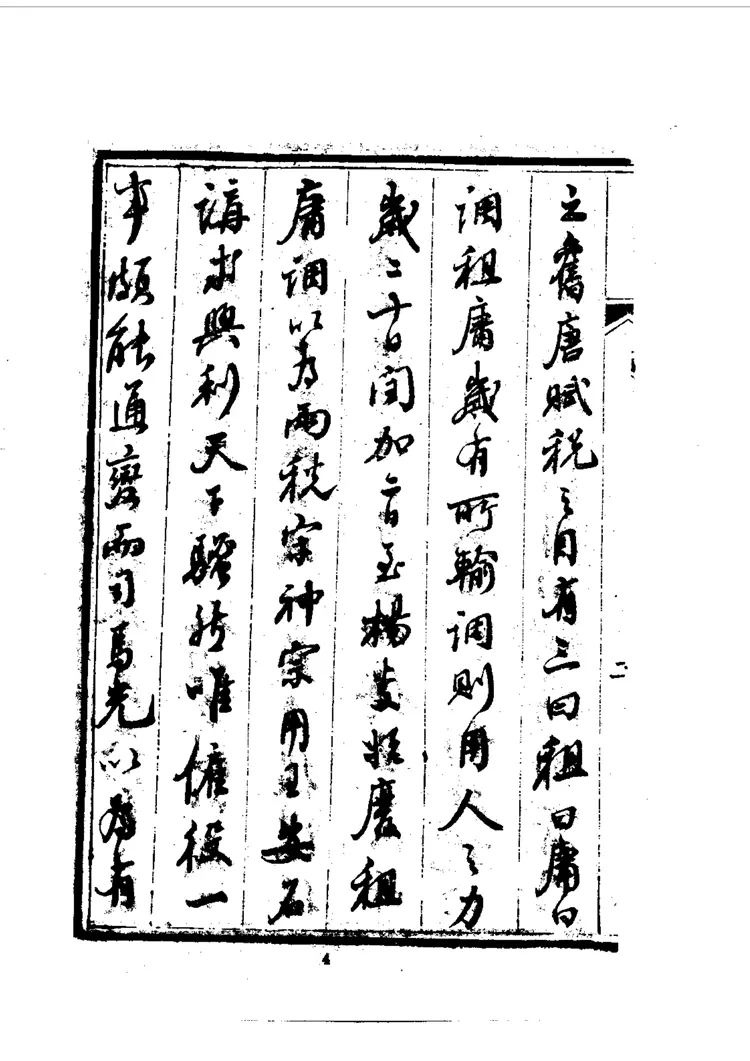 之舊唐賦稅之目有三曰租曰庸曰
調租庸歲有所輸調則用人之力
歲二十日閏加二日至楊炎始廢租
庸調以為兩稅宋神宗用王安石
講求興利天下騷然唯僱役一
事頗能通變而司馬光以為有
二
4